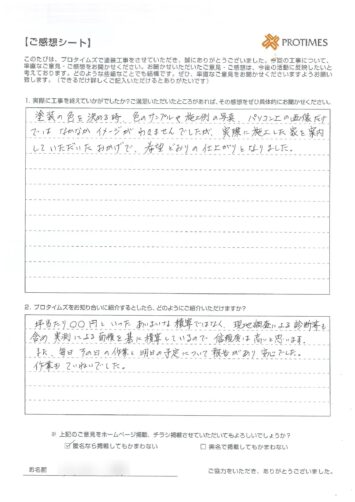 【ご感想シート】
PROTIMES
このたびは、プロタイムズで塗装工事をさせていただき、誠にありがとうございました。今回の工事について、
率直なご意見・ご感想をお聞かせください。お聞かせいただいたご意見・ご感想は、今後の活動に反映したいと
考えております。どのような些細なことでも結構です。ぜひ、率直なご意見をお聞かせくださいますようお願い
致します。（できるだけ詳しくご記入いただけるとありがたいです）
1. 実際に工事を終えていかがでしたか？ご満足いただいたところがあれば、その感想をぜひ具体的にお聞かせください。
塗装の色を決める時、色のサンプルや施工例の写真、パソコン上の画像だけ
では なかなか イメージが わきませんでしたが、実際に施工した家を案内
していただいた おかげで、希望どおりの仕上がりとなりました。
2. プロタイムズをお知り合いに紹介するとしたら、どのようにご紹介いただけますか？
坪当たり〇〇円と いった あいまいな 積算ではなく、現地調査による診断等も
含め 実測による面積を基に積算しているので 信頼度は高いと思います。
また、毎日 その日の作業と明日の予定について 報告があり 安心でした。
作業も ていねいでした。
※ 上記のご意見をホームページ掲載、チラシ掲載させていただいてもよろしいでしょうか？
☑匿名なら掲載してもかまわない　□実名で掲載してもかまわない
お名前
ご協力をいただき、ありがとうございました。